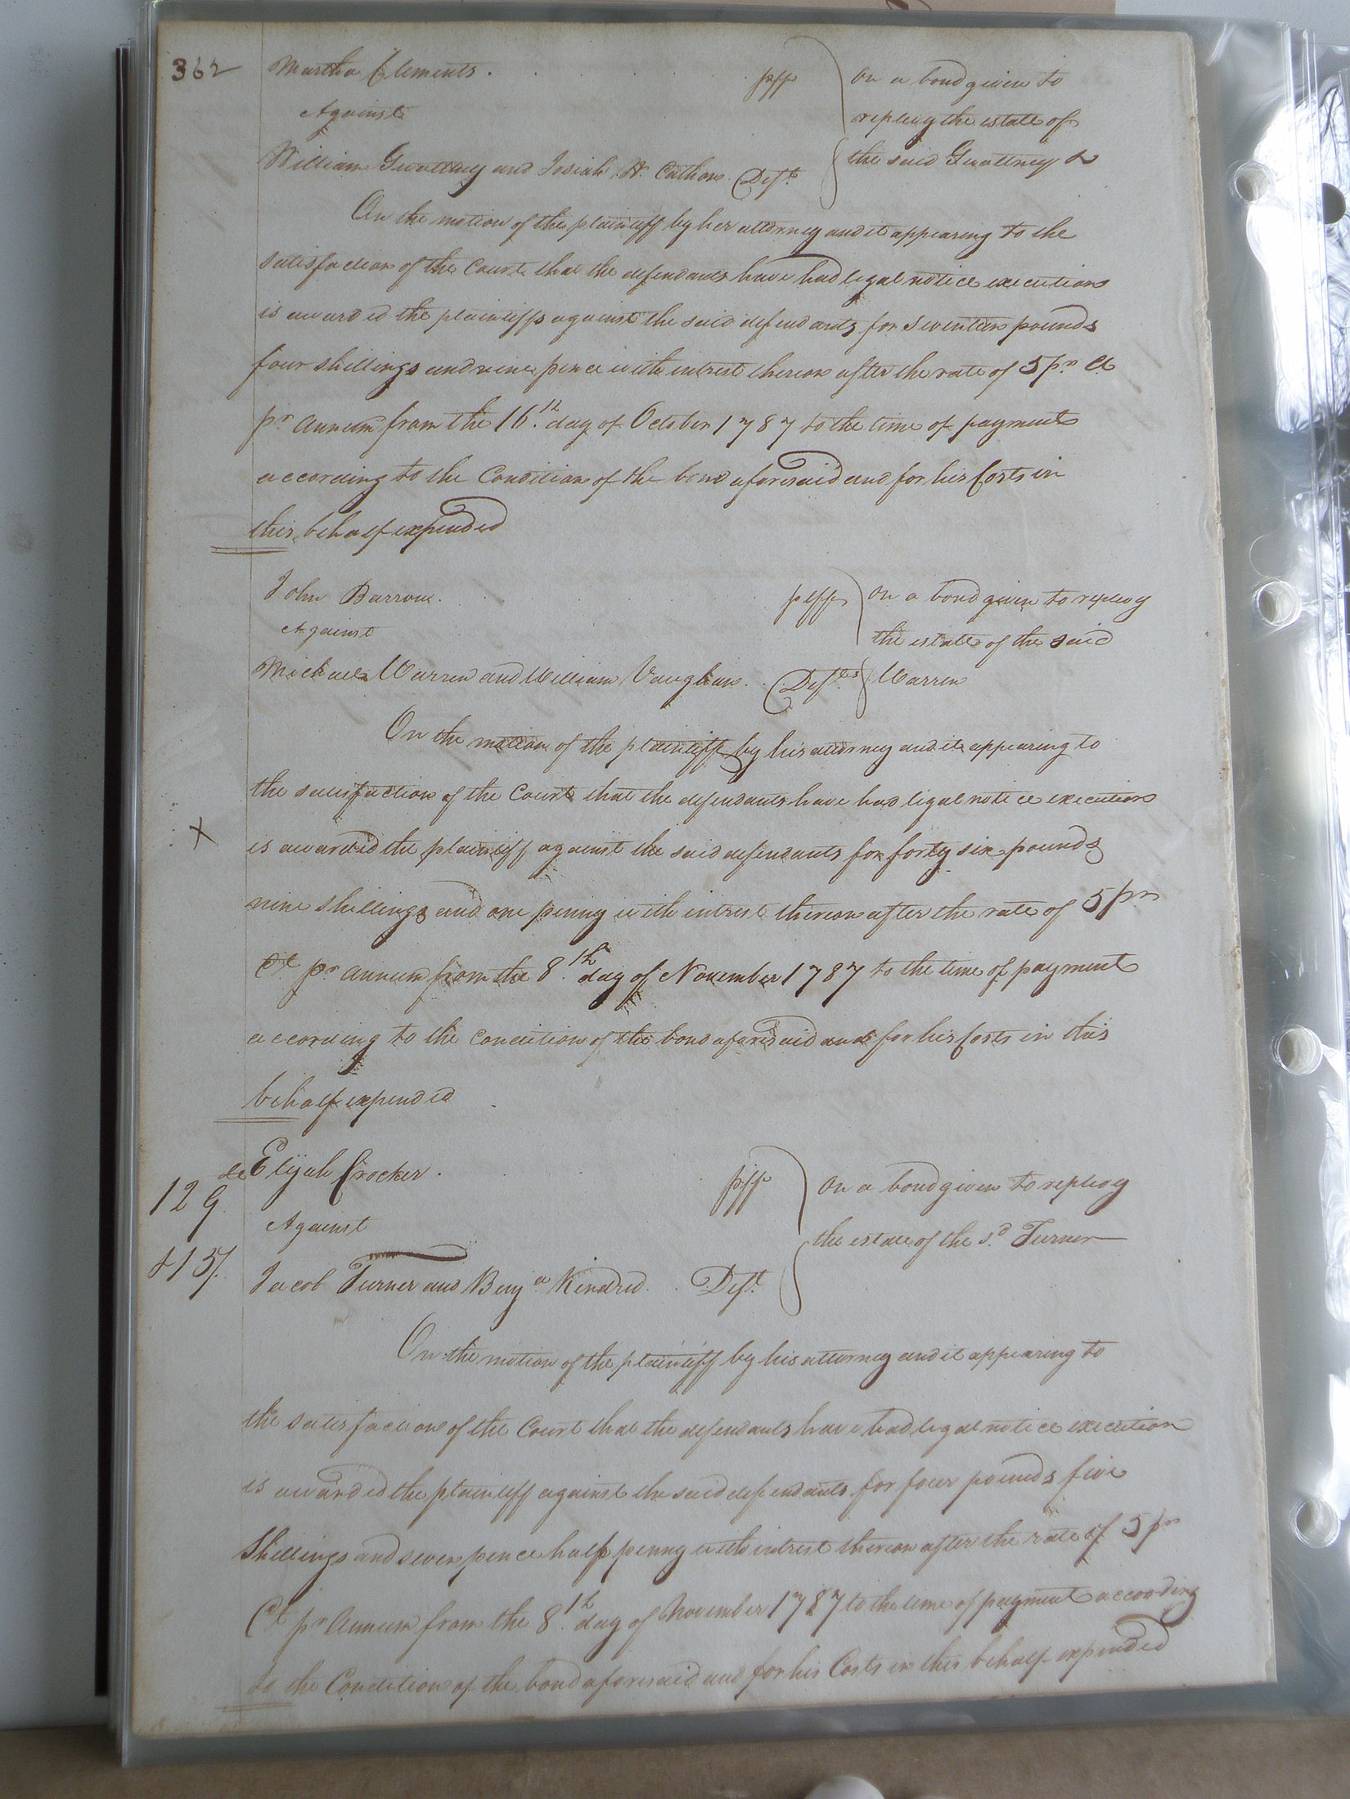 362
Martha Clements . plff on a bond given to
Against replevy the estate of
William Gwaltney and Josiah H. Cathon Defts. the said Gwaltney &
On the motion of the plaintiff by her attorney and it appearing to the
satisfaction of the Court that the defendants have had legal notice execution
is awarded the plaintiffs against the said defendants for seventeen pounds
four shillings and nine pence with intrest thereon after the rate of 5 pr. Ct.
pr Annum from the 16th day of October 1787 to the time of payment
according to the Condition of the bond aforesaid and for his Costs in
this behalf expended
John Barrow. plff on a bond given to replevy
Against the estate of the said
Michael Warren and William Vaughan . Defts Warren
On the motion of the plaintiff by his attorney and it appearing to
the satisfaction of the Court that the defendants have had legal notice execution
X
is awarded the plaintiff against the said defendants for forty six pounds
nine shillings and one penny with intrest thereon after the rate of 5 pr
Ct pr Annum from the 8th day of November 1787 to the time of payment
according to the condition of the bond aforesaid and for his Costs in this
behalf expended
Elijah Crocker . plff on a bond given to replevy
129
Against the estate of the sd. Turner
415/.
Jacob Turner and Benja Kindred . Deft.
On the motion of the plaintiff by his attorney and it appearing to
the satisfaction of the Court that the defendants have had legal notice execution
is awarded the plaintiff against the said defendants for four pounds five
Shillings and seven pence half penny with intrest thereon after the rate of 5 pr
Ct pr Annum from the 8th day of November 1787 to the time of payment according
to the Condition of the bond aforesaid and for his Costs in this behalf expended